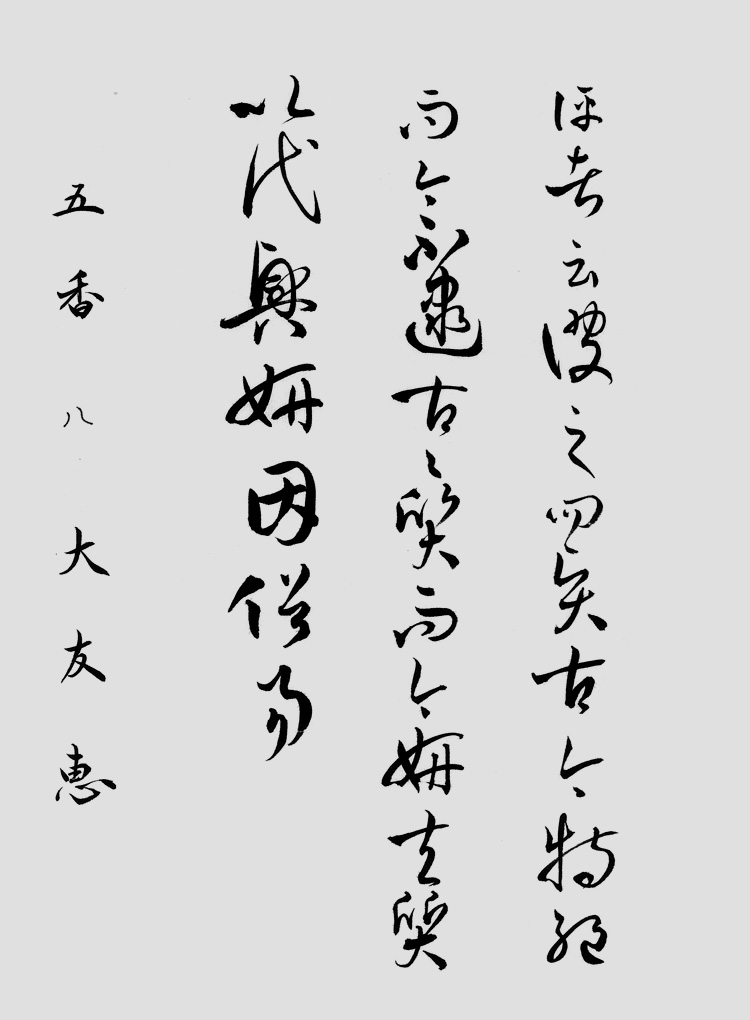 評者云彼之四賢古今特絶
而今不逮古〻質而今妍夫質
以代興妍因俗易
五香 八 大友恵